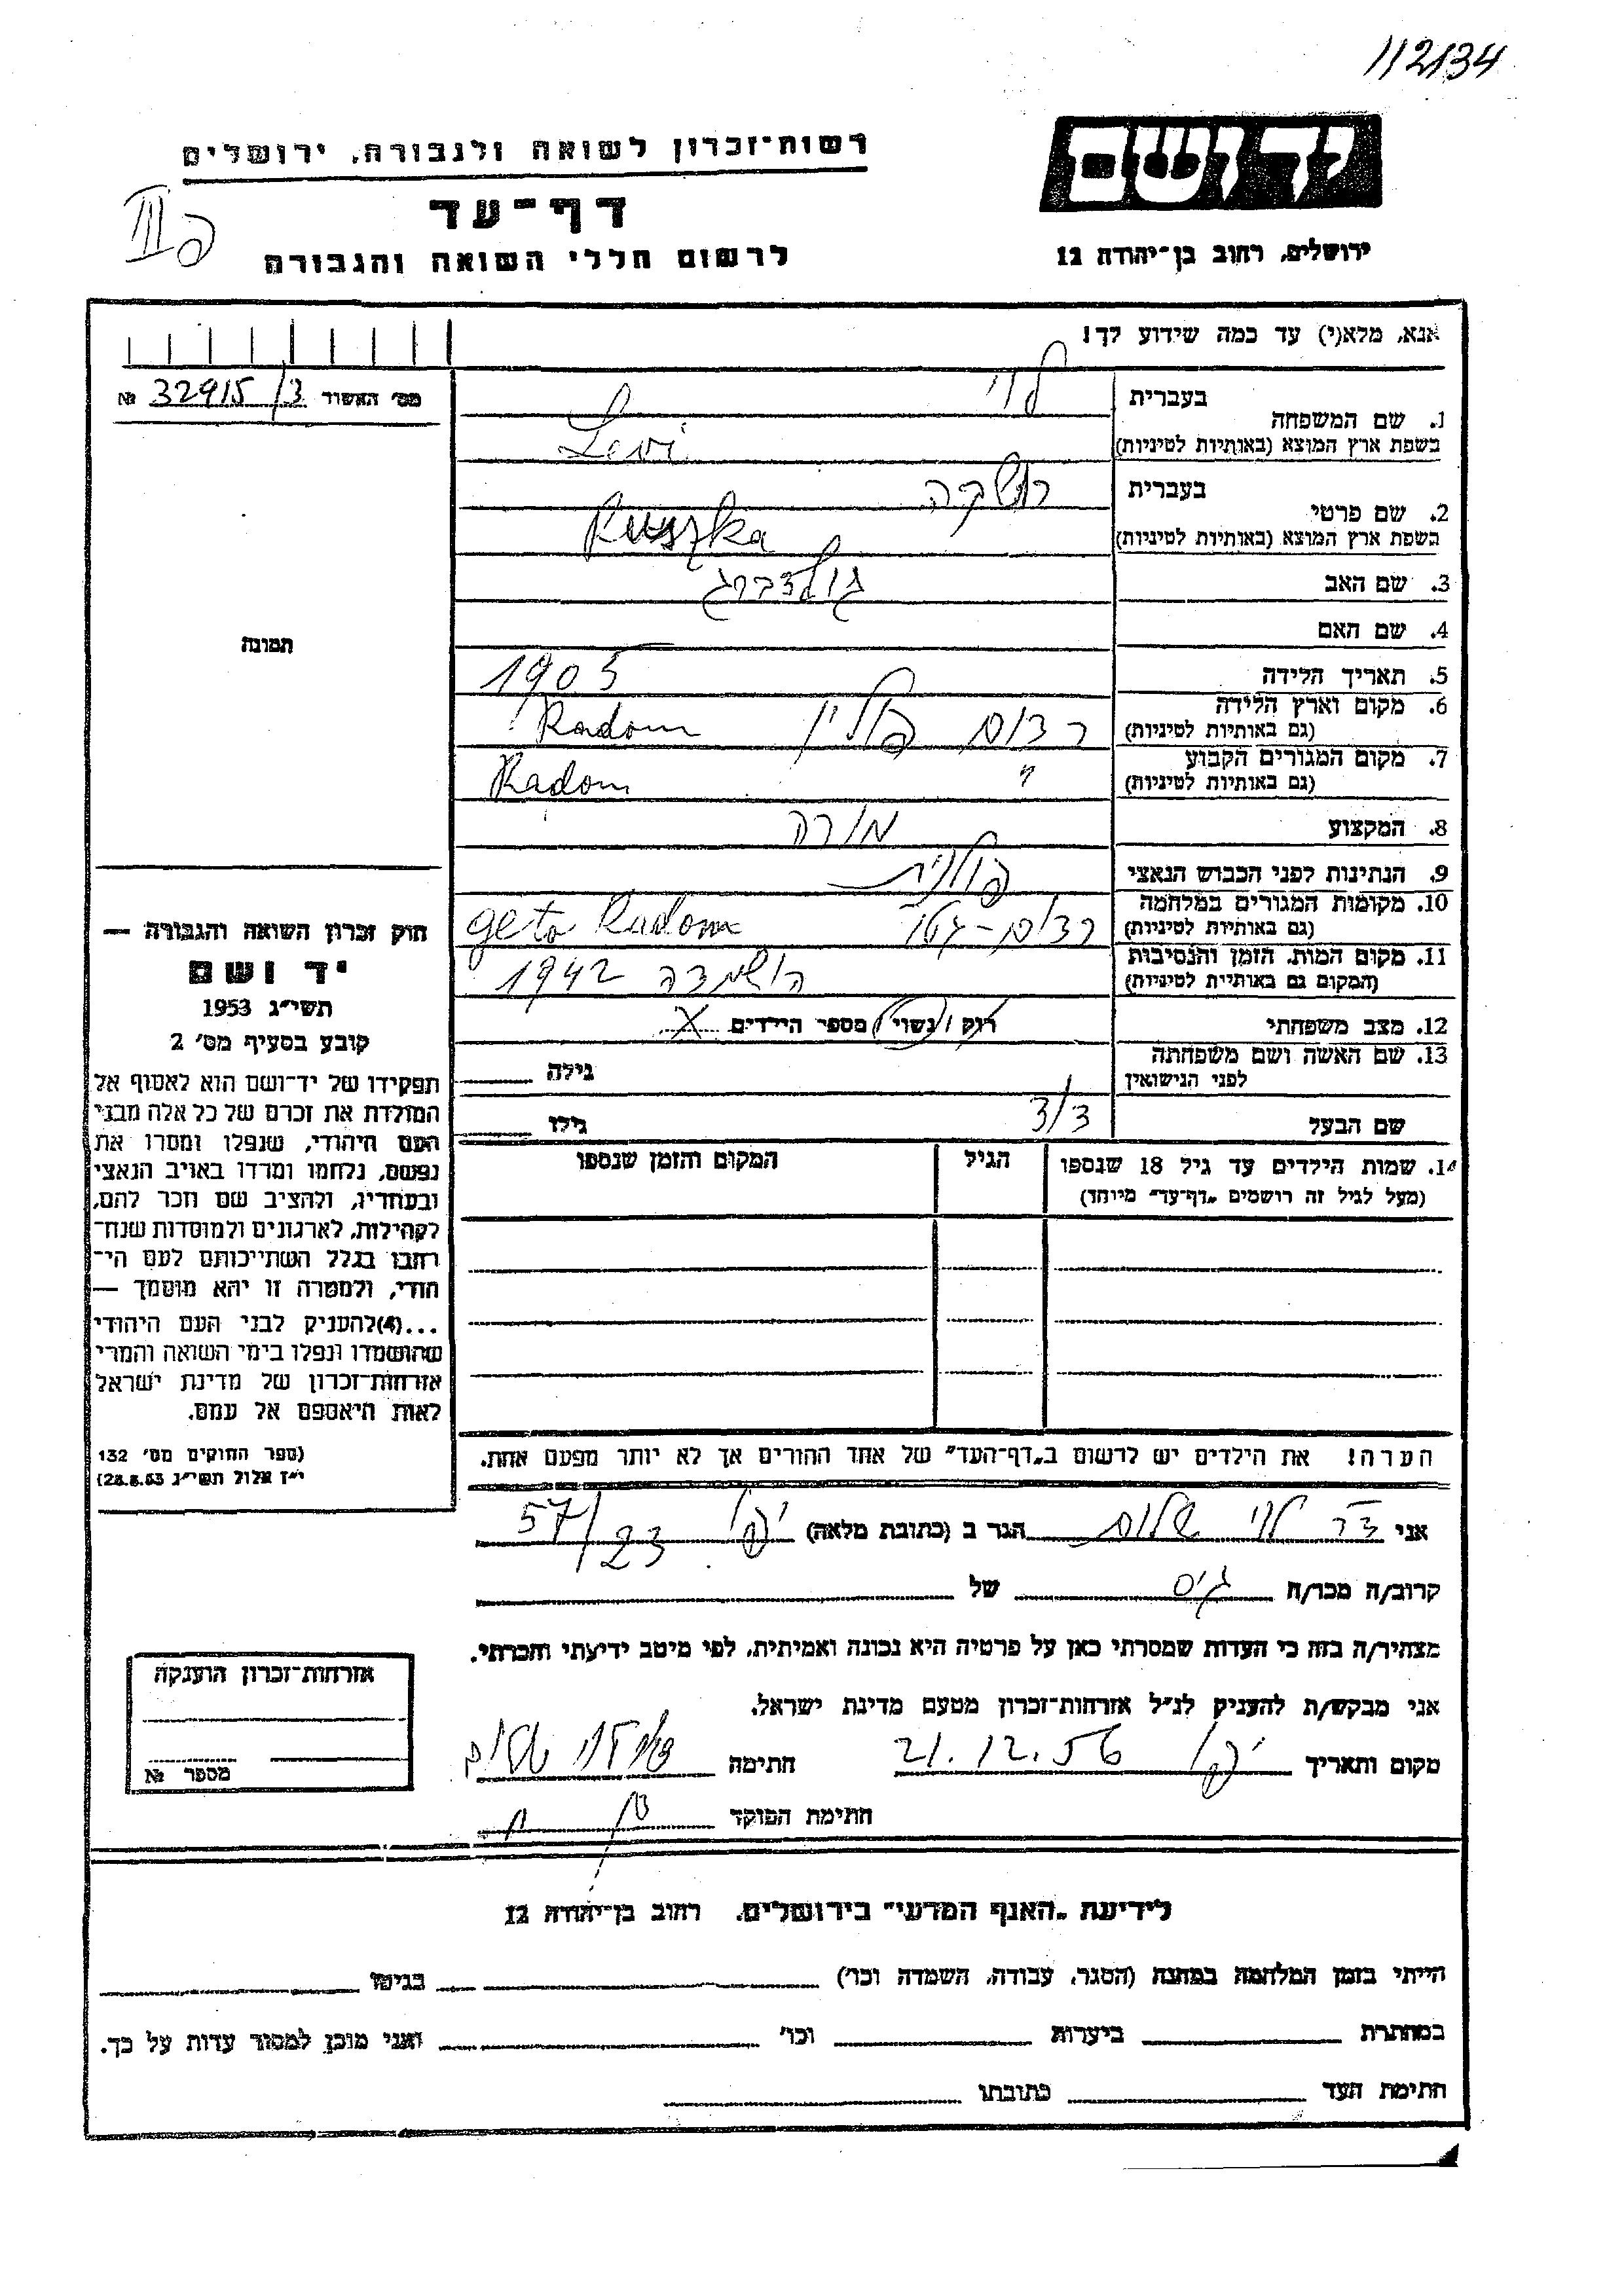 112134
יד ושם
רשות־זכרון לשואה ולגבורה, ירושלים
דף־עד
לרשום חללי השואה והגבורה
ירושלים, רחוב בן־יהודה 12
אנא, מלא(י) עד כמה שידוע לך!
מס׳ האשור 32915/3 №
1. שם המשפחה בעברית לוי
בשפת ארץ המוצא (באותיות לטיניות) Levi
2. שם פרטי בעברית רושקה
בשפת ארץ המוצא (באותיות לטיניות) Ruszka
3. שם האב גולדברג
4. שם האם
5. תאריך הלידה 1905
6. מקום וארץ הלידה (גם באותיות לטיניות) רדום פולין Radom
7. מקום המגורים הקבוע (גם באותיות לטיניות) " Radom
8. המקצוע מורה
9. הנתינות לפני הכבוש הנאצי פולנית
10. מקומות המגורים במלחמה (גם באותיות לטיניות) רדום-גטו geto Radom
11. מקום המות, הזמן והנסיבות (המקום גם באותיות לטיניות) הושמדה 1942
12. מצב משפחתי רווק / נשוי / מספר הילדים X
13. שם האשה ושם משפחתה לפני הנישואין גילה
שם הבעל 3/3 גילו
14. שמות הילדים עד גיל 18 שנספו (מעל לגיל זה רושמים „דף־עד" מיוחד) הגיל המקום והזמן שנספו
הערה! את הילדים יש לרשום ב„דף־העד" של אחד ההורים אך לא יותר מפעם אחת.
תמונה
חוק זכרון השואה והגבורה —
יד ושם
תשי״ג 1953
קובע בסעיף מס׳ 2
תפקידו של יד־ושם הוא לאסוף אל
המולדת את זכרם של כל אלה מבני
העם היהודי, שנפלו ומסרו את
נפשם, נלחמו ומרדו באויב הנאצי
ובעוזריו, ולהציב שם וזכר להם,
לקהילות, לארגונים ולמוסדות שנח־
רבו בגלל השתייכותם לעם הי־
הודי, ולמטרה זו יהא מוסמך —
...(4)להעניק לבני העם היהודי
שהושמדו ונפלו בימי השואה והמרי
אזרחות־זכרון של מדינת ישראל
לאות היאספם אל עמם.
(ספר החוקים מס׳ 132
י״ז אלול תשי״ג 28.8.53)
אני דר לוי שלום הגר ב (כתובת מלאה) יפו 57/23
קרוב/ה מכר/ה גיס של
מצהיר/ה בזה כי העדות שמסרתי כאן על פרטיה היא נכונה ואמיתית, לפי מיטב ידיעתי והכרתי.
אני מבקש/ת להעניק לנ״ל אזרחות־זכרון מטעם מדינת ישראל.
מקום ותאריך יפו 21.12.56 חתימה
חתימת הפוקד
אזרחות־זכרון הוענקה
מספר №
לידיעת „האגף המדעי" בירושלים, רחוב בן־יהודה 12
הייתי בזמן המלחמה במחנה (הסגר, עבודה, השמדה וכו׳) בגיטו
במחתרת ביערות וכו׳ ואני מוכן למסור עדות על כך.
חתימת העד כתובתו